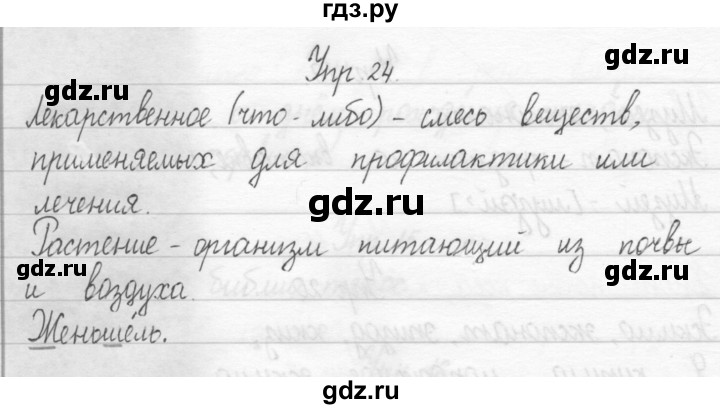 гдз.ру
gdz.ru
gdz.ru
Упр 24.
Лекарственное (что-либо) - смесь веществ,
применяемых для профилактики или
лечения.
gdz.ru
Растение - организм питающий из почвы
gdz.ru
gdz.ru
и воздуха.
Женьшель.
gdz.ru
gdz.ru